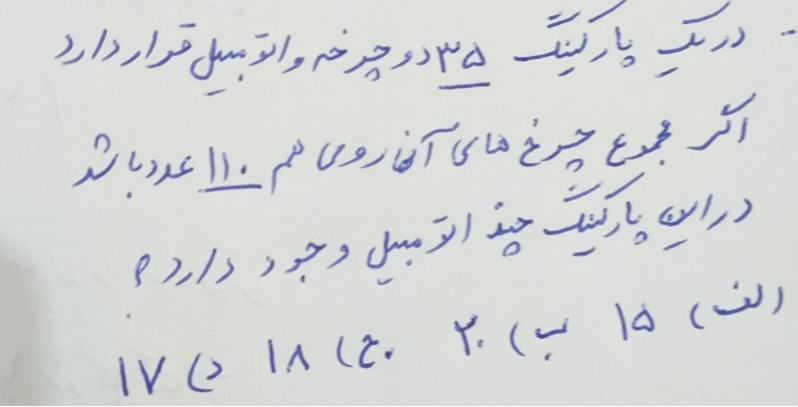 - در یک پارکینگ ۳۵ دوچرخه و اتومبیل قرار دارد
اگر مجموع چرخ های آنها روی هم ۱۱۰ عدد باشد
در این پارکینگ چند اتومبیل وجود دارد؟
الف) ۱۵ ب) ۲۰ ج) ۱۸ د) ۱۷